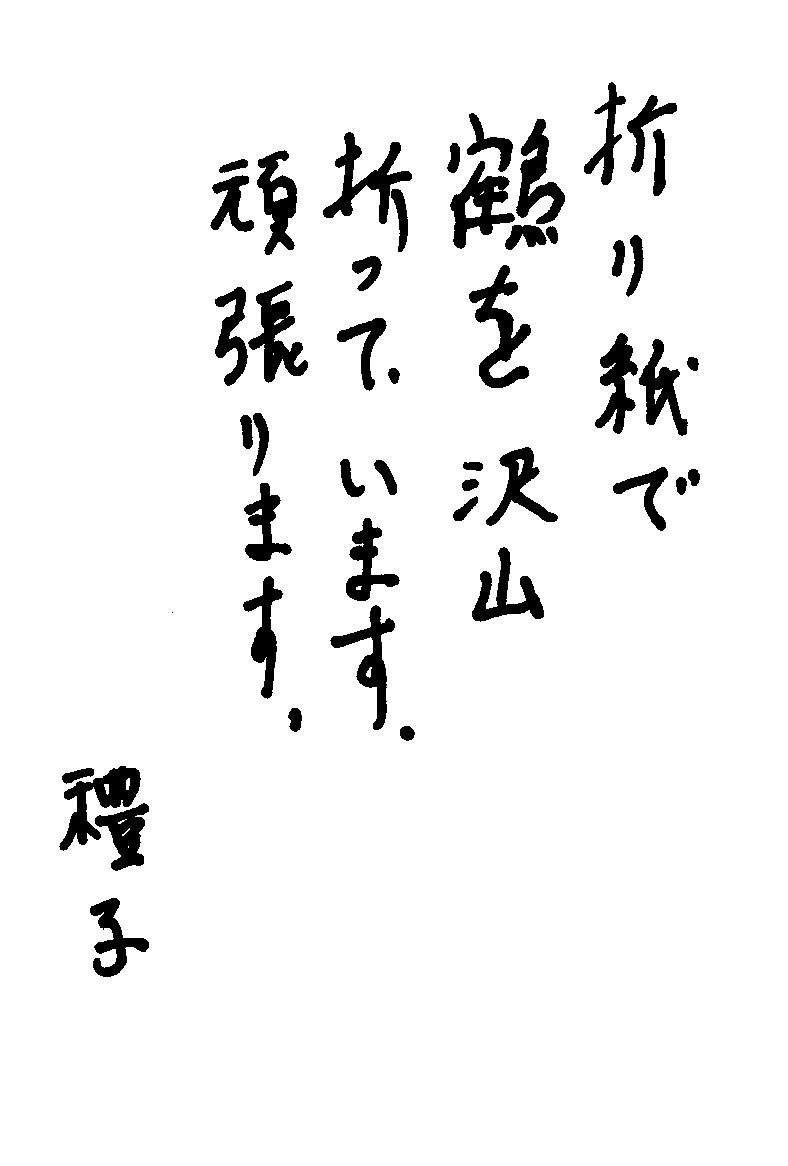 折り紙で
鶴を沢山
折って、います。
頑張ります。
禮子